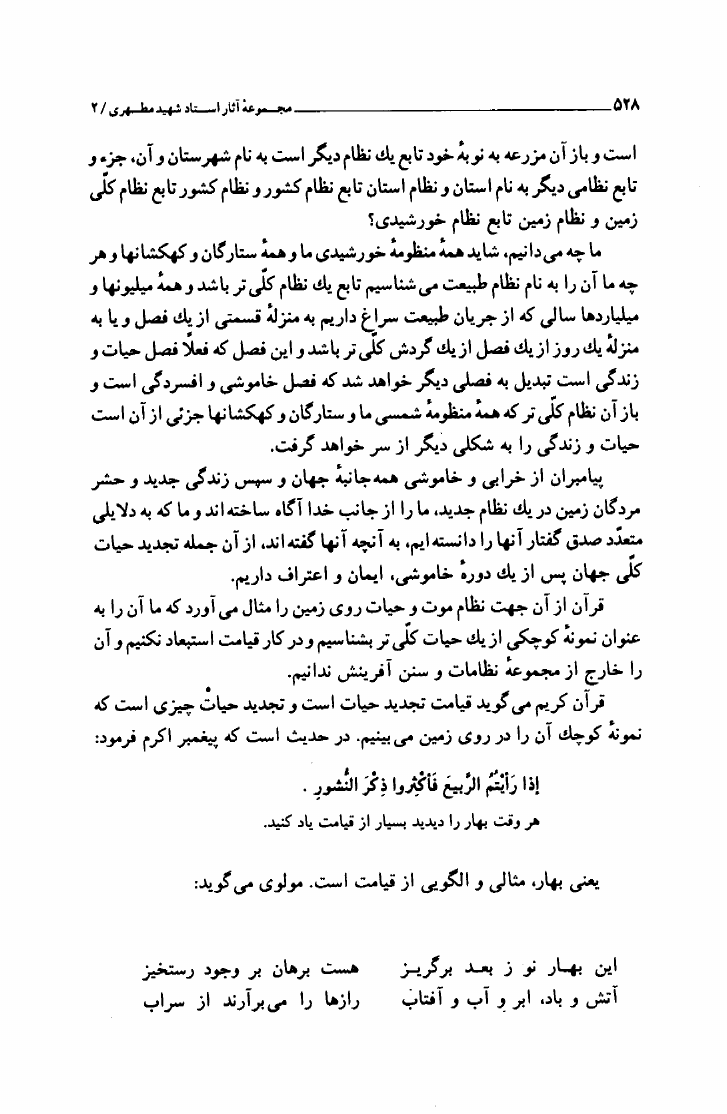 ۵۲۸ مجموعهٔ آثار استاد شهید مطهری / ۲
است و باز آن مزرعه به نوبهٔ خود تابع یك نظام دیگر است به نام شهرستان و آن، جزء و
تابع نظامی دیگر به نام استان و نظام استان تابع نظام کشور و نظام کشور تابع نظام کلّی
زمین و نظام زمین تابع نظام خورشیدی؟
ما چه می‌دانیم، شاید همهٔ منظومهٔ خورشیدی ما و همهٔ ستارگان و کهکشانها و هر
چه ما آن را به نام نظام طبیعت می‌شناسیم تابع یك نظام کلّی‌تر باشد و همهٔ میلیونها و
میلیاردها سالی که از جریان طبیعت سراغ داریم به منزلهٔ قسمتی از یك فصل و یا به
منزلهٔ یك روز از یك فصل از یك گردش کلّی‌تر باشد و این فصل که فعلاً فصل حیات و
زندگی است تبدیل به فصلی دیگر خواهد شد که فصل خاموشی و افسردگی است و
باز آن نظام کلّی‌تر که همهٔ منظومهٔ شمسی ما و ستارگان و کهکشانها جزئی از آن است
حیات و زندگی را به شکلی دیگر از سر خواهد گرفت.
پیامبران از خرابی و خاموشی همه‌جانبهٔ جهان و سپس زندگی جدید و حشر
مردگان زمین در یك نظام جدید، ما را از جانب خدا آگاه ساخته‌اند و ما که به دلایلی
متعدّد صدق گفتار آنها را دانسته‌ایم، به آنچه آنها گفته‌اند، از آن جمله تجدید حیات
کلّی جهان پس از یك دورهٔ خاموشی، ایمان و اعتراف داریم.
قرآن از آن جهت نظام موت و حیات روی زمین را مثال می‌آورد که ما آن را به
عنوان نمونهٔ کوچکی از یك حیات کلّی‌تر بشناسیم و در کار قیامت استبعاد نکنیم و آن
را خارج از مجموعهٔ نظامات و سنن آفرینش ندانیم.
قرآن کریم می‌گوید قیامت تجدید حیات است و تجدید حیاتْ چیزی است که
نمونهٔ کوچك آن را در روی زمین می‌بینیم. در حدیث است که پیغمبر اکرم فرمود:
إذا رَأَيْتُمُ الرَّبيعَ فَأكْثِروا ذِكْرَ النُّشورِ .
هر وقت بهار را دیدید بسیار از قیامت یاد کنید.
یعنی بهار، مثالی و الگویی از قیامت است. مولوی می‌گوید:
این بهار نو ز بعد برگریز هست برهان بر وجود رستخیز
آتش و باد، ابر و آب و آفتاب رازها را می‌برآرند از سراب